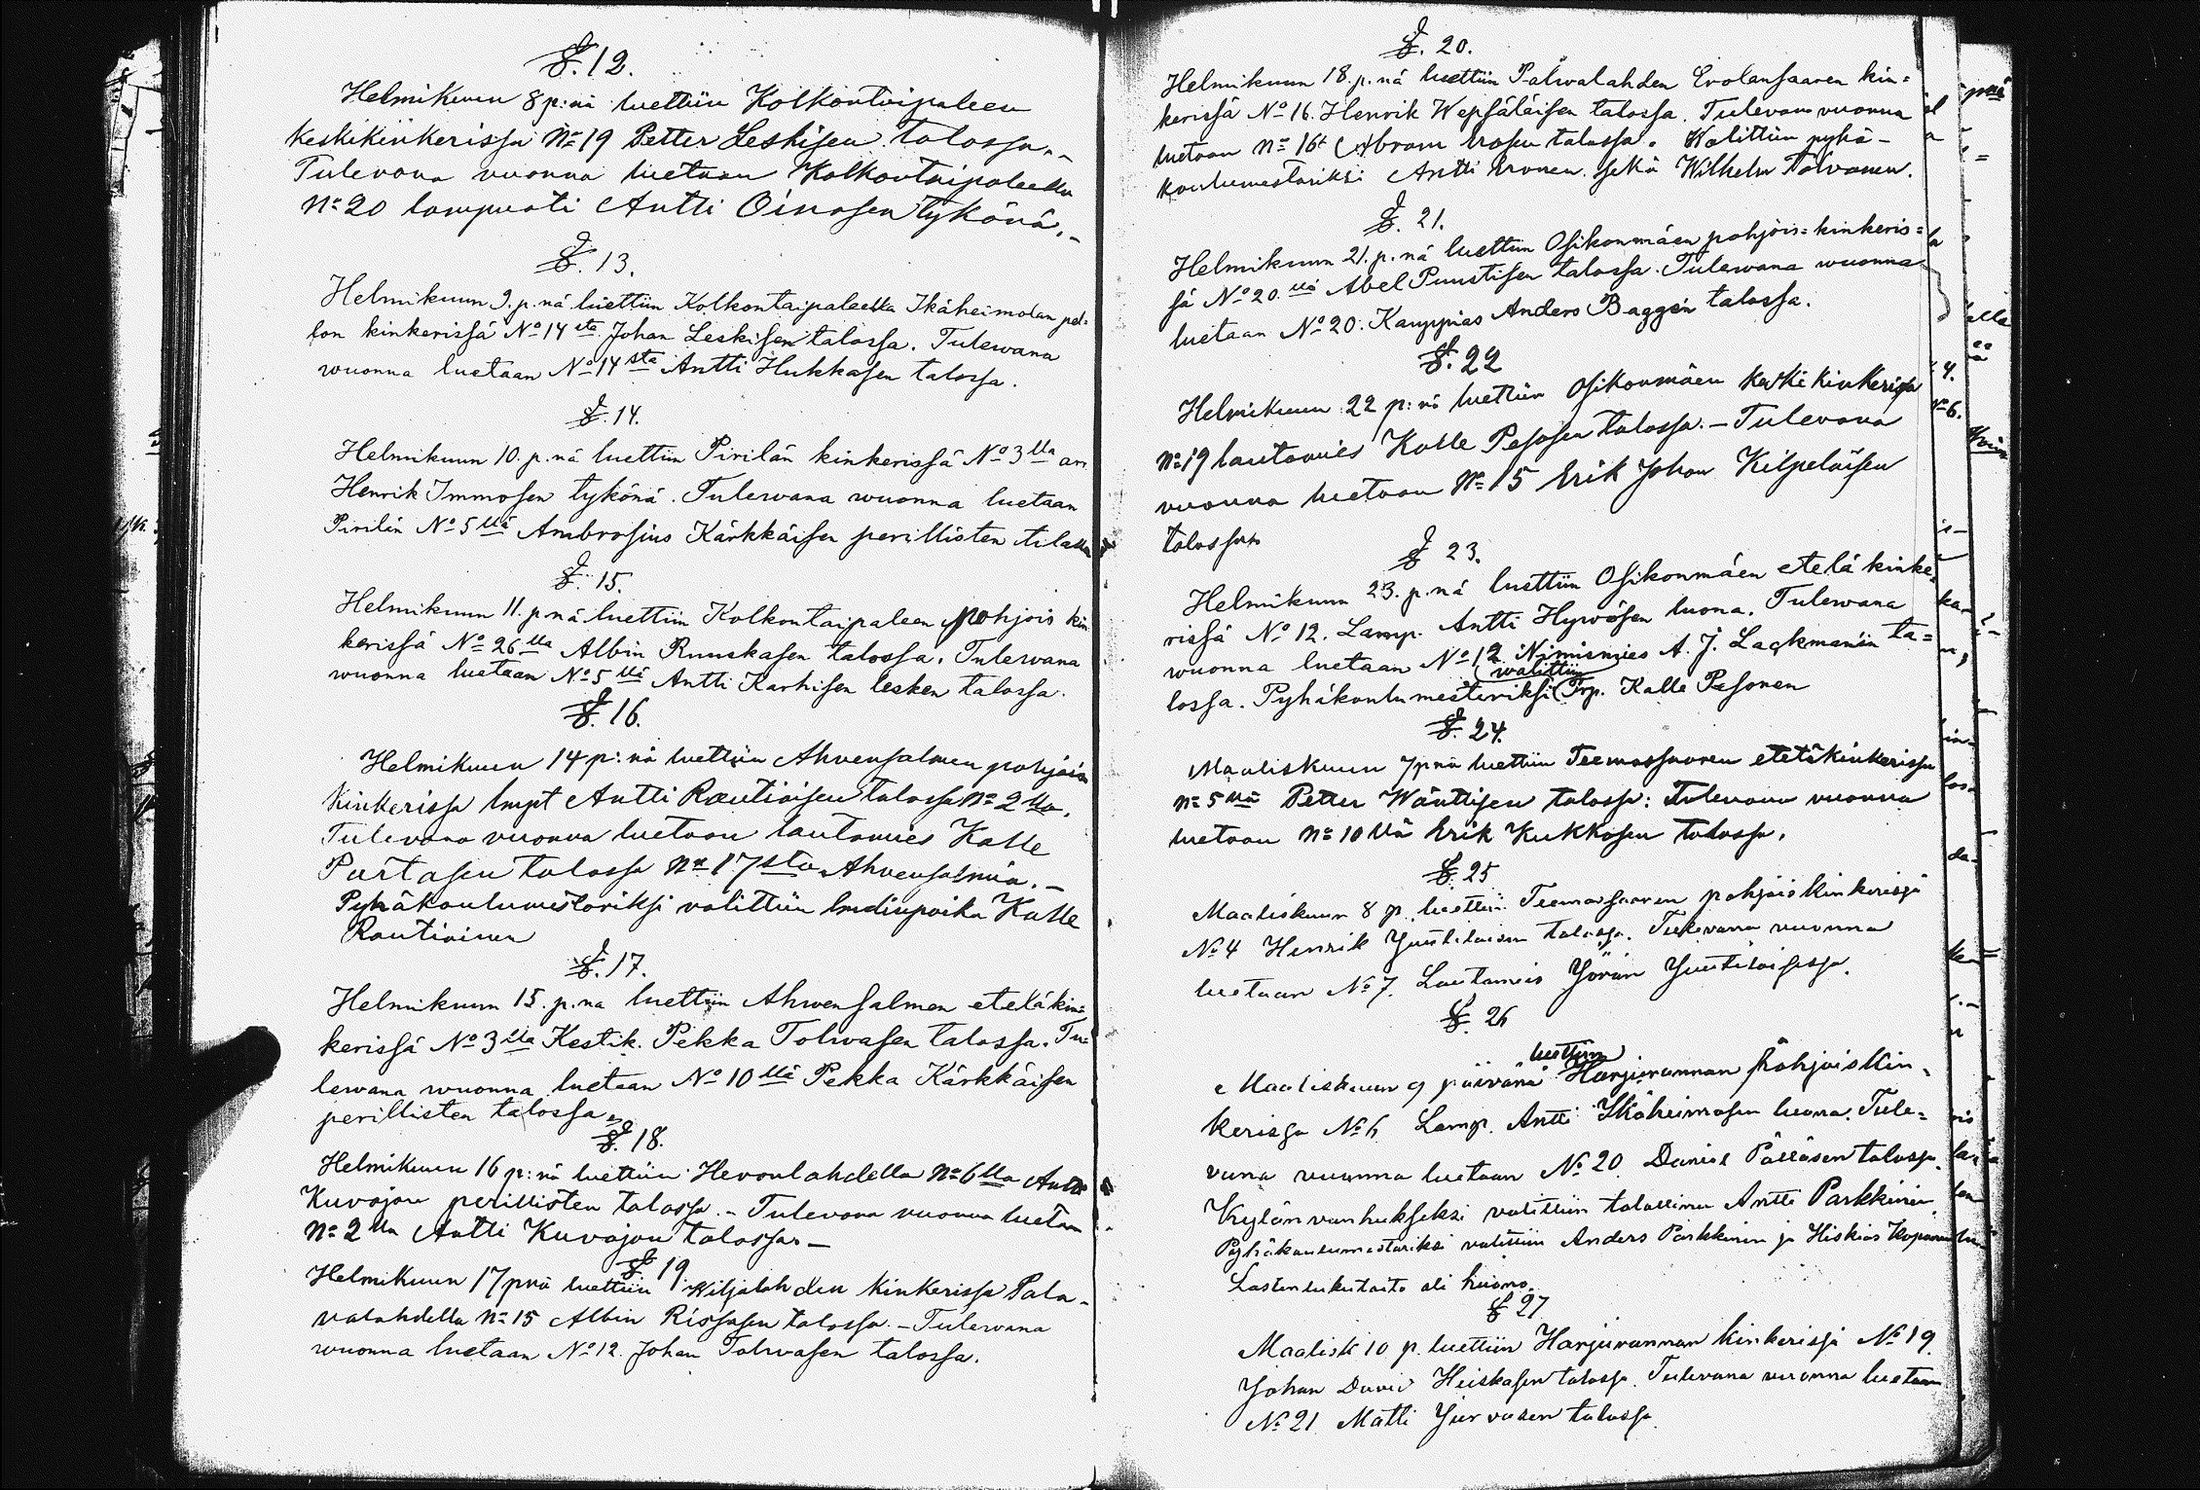 §. 12.
Helmikuun 8 p:nä luettiin Kolkontaipaleen
keskikinkerissä No 19 Petter Leskisen talossa. –
Tulevana vuonna luetaan Kolkontaipaleella
No 20 lampuoti Antti Oinosen tykönä. –
§. 13.
Helmikuun 9. p.nä luettiin Kolkontaipaleella Ikäheimolan pel-
lon kinkerissä No 14 sta Johan Leskisen talossa. Tulewana
wuonna luetaan No 14 sta Antti Hukkasen talossa.
§. 14.
Helmikuun 10. p.nä luettiin Pirilän kinkerissä No 3 lla arr.
Henrik Immosen tykönä. Tulewana wuonna luetaan
Pirilän No 5 llä Ambrosius Kärkkäisen perillisten tilalla
§. 15.
Helmikuun 11. p.nä luettiin Kolkontaipaleen pohjois kin
kerissä No 26 lla Albin Ruuskasen talossa. Tulewana
wuonna luetaan No 5 llä Antti Karhisen lesken talossa.
§. 16.
Helmikuun 14 p:nä luettiin Ahvensalmen pohjois
kinkerissa lmpt Antti Rautioisen talossa No 2 lla.
Tulevana vuonna luetaan lautamies Kalle
Partasen talossa No 17 sta Ahvensalmia. –
Pyhäkoulumestariksi valittiin lmdinpoika Kalle
Rautiainen
§. 17.
Helmikuun 15. p.na luettiin Ahwensalmen eteläkin-
kerissä No 3 lla Kestik. Pekka Tolwasen talossa. Tu-
lewana wuonna luetaan No 10 llä Pekka Kärkkäisen
perillisten talossa.
§. 18.
Helmikuun 16 p:nä luettiin Hevonlahdella No 6 lla Antti
Kuvajan perillisten talossa. – Tulevana vuonna luetaan
No 2 lla Antti Kuvajan talossa. –
§. 19
Helmikuun 17 pnä luettiin Kiljalahden kinkerissa Pala-
valahdella No 15 Albin Rissasen talossa. – Tulewana
wuonna luetaan No 12. Johan Tolwasen talossa.
§. 20.
Helmikuun 18. p.nä luettiin Pälwalahden Erolansaaren kin-
kerissä No 16. Henrik Wepsäläisen talossa. Tulevana vuonna
luetaan No 16 Abram Erosen talossa. Valittiin pyhä-
koulumestariksi Antti Eronen sekä Wilhelm Tolvanen.
§. 21.
Helmikuun 21. p.nä luettiin Osikonmäen pohjois-kinkeris-
sä No 20. llä Abel Puustisen talossa. Tulewana wuonna
luetaan No 20. Kauppias Anders Baggén talossa.
§. 22
Helmikuun 22 p:nä luettiin Osikonmäen keskikinkerissa
No 19 lautamies Kalle Pesosen talossa. – Tulevana
vuonna luetaan No 15 Erik Johan Kilpeläisen
talossa
§ 23.
Helmikuun 23. p.nä luettiin Osikonmäen eteläkinke-
rissä No 12. Lamp. Antti Hywösen luona. Tulewana
wuonna luetaan No 12 Nimismies A. J. Lackmanin ta-
lossa. Pyhäkoulumesteriksi walittiin Trp. Kalle Pesonen
§. 24.
Maaliskuun 7 pnä luettiin Teemassaaren eteläkinkerissa
No 5 llä Petter Wänttisen talossa: Tulevana vuonna
luetaan No 10 llä Erik Kukkosen talossa.
§ 25
Maaliskuun 8 p. luettiin Teemassaaren pohjoiskinkerissä
No 4 Henrik Juutilaisen talossa. Tulevana vuonna
luetaan No 7. Lautamies Yörän Juutilaisessa.
§ 26
Maaliskuun 9 päivänä luettiin Harjurannan Pohjoiskin-
kerissa No 6 Lamp. Antti Ikäheimosen luona. Tule-
vana vuonna luetaan No 20 Daniel Pölläsen talossa.
Kylänvanhukseksi valittiin talollinen Antti Parkkinen.
Pyhäkoulumestariksi valittiin Anders Parkkinen ja Hiskias Koponen
Lasten lukutaito oli huono.
§ 27
Maalisk 10 p. luettiin Harjurannan kinkerissä No 19.
Johan David Heiskasen talossa. Tulevana vuonna luetaan
No 21 Matti Jurvasen talossa.